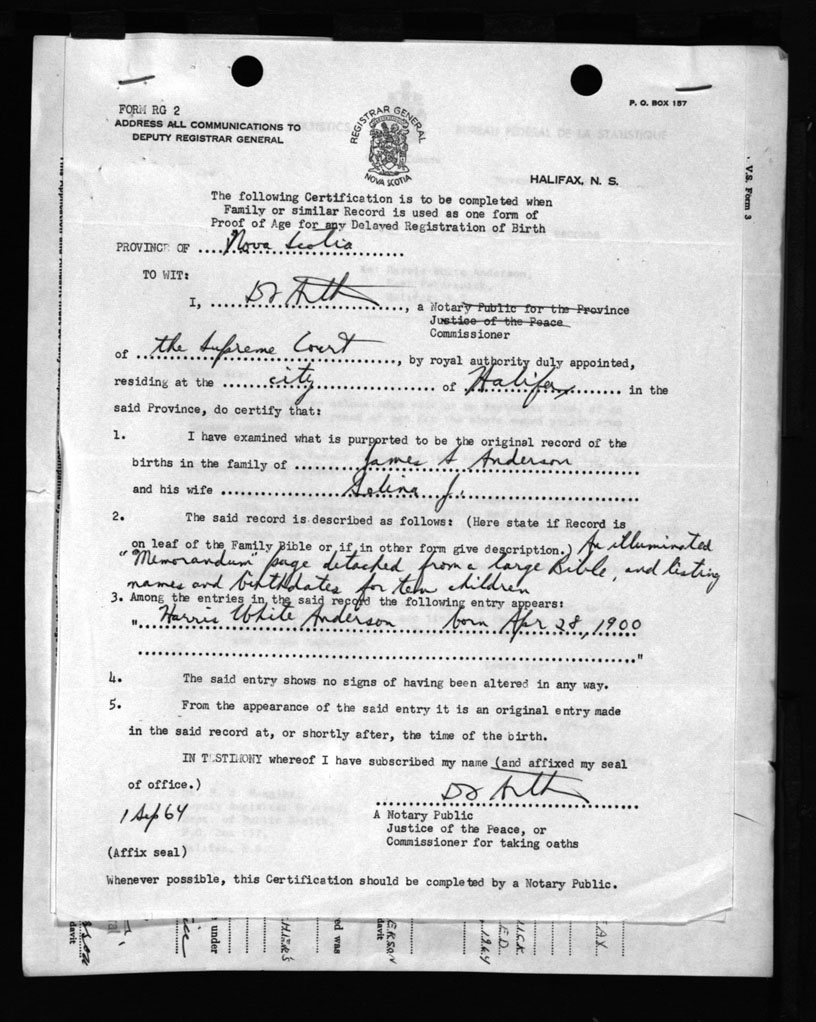 FORM RG 2
P. O. BOX 157
ADDRESS ALL COMMUNICATIONS TO
DEPUTY REGISTRAR GENERAL
REGISTRAR GENERAL
NOVA SCOTIA
BUREAU FEDERAL DE LA STATISTIQUE
HALIFAX, N. S.
V.S. Form 3
The following Certification is to be completed when
Family or similar Record is used as one form of
Proof of Age for any Delayed Registration of Birth
PROVINCE OF ....Nova Scotia
TO WIT:
I, ...................., a Notary Public for the Province
Justice of the Peace
Commissioner
of ...the Supreme Court..., by royal authority duly appointed,
residing at the ...city... of ...Halifax... in the
said Province, do certify that:
1. I have examined what is purported to be the original record of the
births in the family of ...James S Anderson
and his wife ...Selina J.
2. The said record is described as follows: (Here state if Record is
on leaf of the Family Bible or if in other form give description.) An illuminated
"Memorandum" page detached from a large Bible, and listing
names and birthdates for ten children
3. Among the entries in the said record the following entry appears:
"..Harris White Anderson born Apr 28, 1900
..."
4. The said entry shows no signs of having been altered in any way.
5. From the appearance of the said entry it is an original entry made
in the said record at, or shortly after, the time of the birth.
IN TESTIMONY whereof I have subscribed my name (and affixed my seal
of office.)
1 Sep 64
A Notary Public
Justice of the Peace, or
Commissioner for taking oaths
(Affix seal)
Whenever possible, this Certification should be completed by a Notary Public.
davit
under
ed was
davit
1964